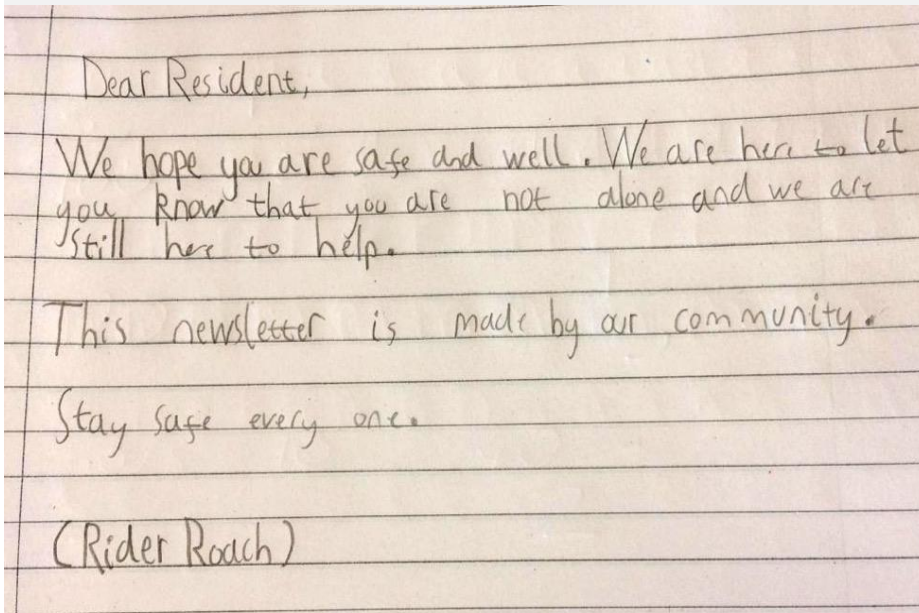 Dear Resident,
We hope you are safe and well. We are here to let
you know that you are not alone and we are
still here to help.
This newsletter is made by our community.
Stay safe every one.
(Rider Roach)